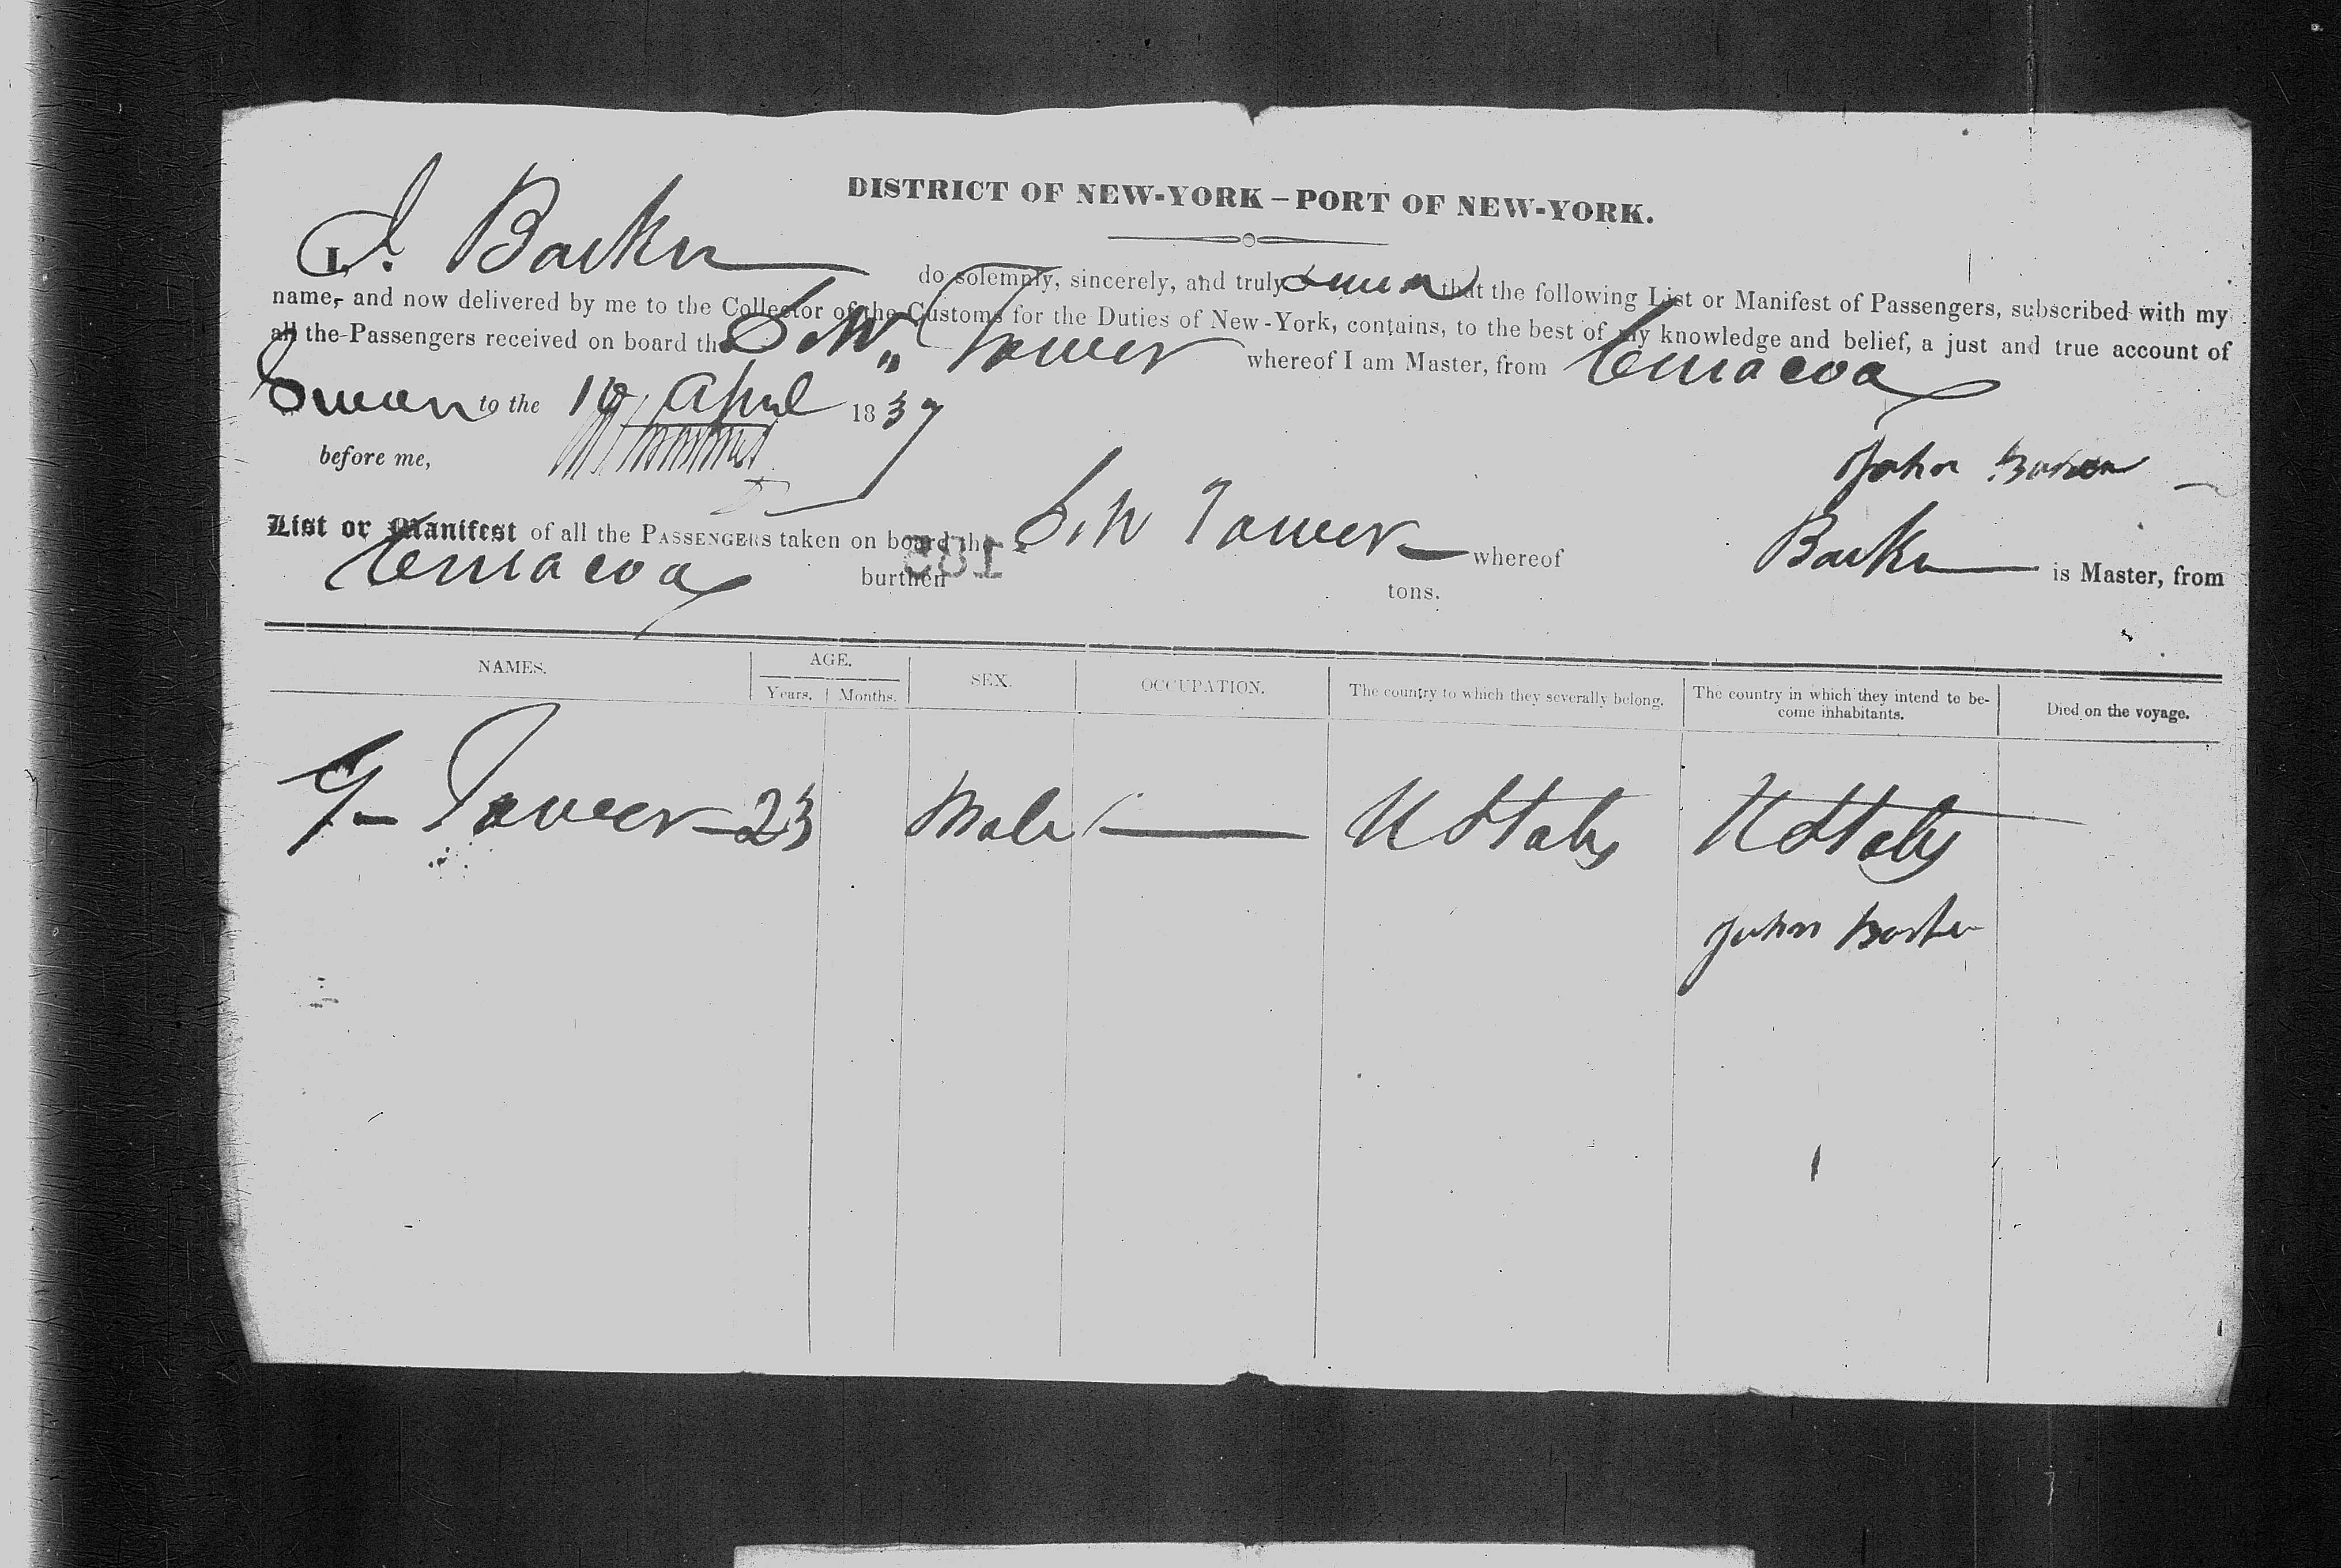 DISTRICT OF NEW-YORK – PORT OF NEW-YORK.
I, J. Barker do solemnly, sincerely, and truly swear that the following List or Manifest of Passengers, subscribed with my
name, and now delivered by me to the Collector of the Customs for the Duties of New-York, contains, to the best of my knowledge and belief, a just and true account of
all the Passengers received on board the S. W. Tower whereof I am Master, from Curacoa
Sworn to the 10 April 1837
before me,
John Barker
List or Manifest of all the PASSENGERS taken on board the S. W Tower whereof Barker is Master, from
Curacoa burthen 188 tons.
NAMES. AGE. SEX. OCCUPATION. The country to which they severally belong. The country in which they intend to be- Died on the voyage.
Years. Months. come inhabitants.
Tower 23 Male — U States U States
John Barker